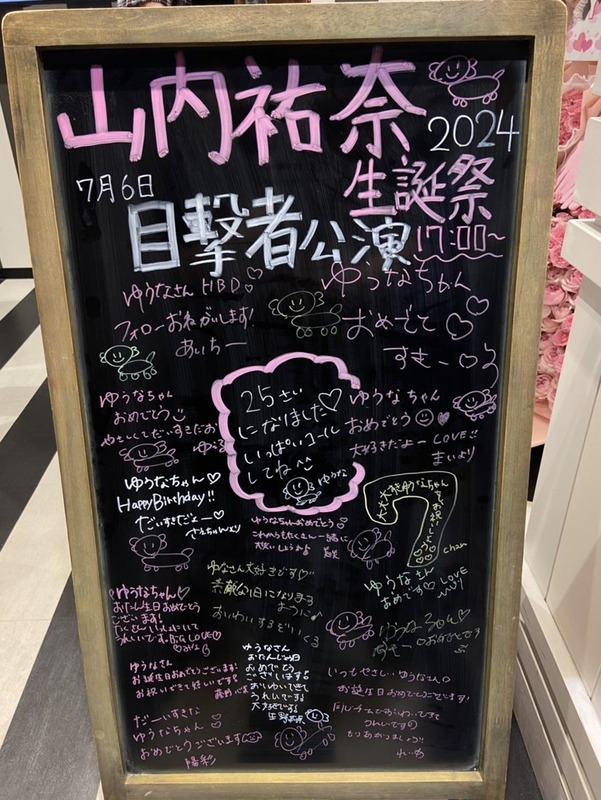 山内祐奈
2024
生誕祭
7月6日
目撃者公演
17:00~
ゆうなさん HBD♡
フォローおねがいします!
あいちー
ゆうなちゃん
おめでと♡
すきー
25さい
になりました♡
いっぱいコール
してね
ゆうな
ゆうなちゃん
おめでとう
やさしくてだいすきだお
ゆうなちゃん
おめでとう
大好きだよー LOVE!!
まいより
ゆうなちゃん♡
Happy Birthday!!
だいすきだよー♡
さえちゃんより
ゆうなちゃんおめでとう♡
これからもたくさん一緒に
大好き
chan
ゆうなさん
おめです♡ LOVE
ゆなさん大好きです♡
素敵な1日になります
ように
おいわいする
ゆうなちゃん♡
お誕生日おめでとう
ございます!
うれしいです。
LOVE♡
ゆうなさん
お誕生日おめでとうございます!
お祝いできて嬉しいです!
ゆうなさん
おたんじょう日
おめでとう
ございます!
おいわいできて
うれしいです!
大好きです!
いつもやさしいゆうなさん
お誕生日おめでとうございます!
同じチームでおいわいできて
うれしいです
もりあがりましょう!!
だーいすきな
ゆうなちゃん♡
おめでとうございます
陽彩